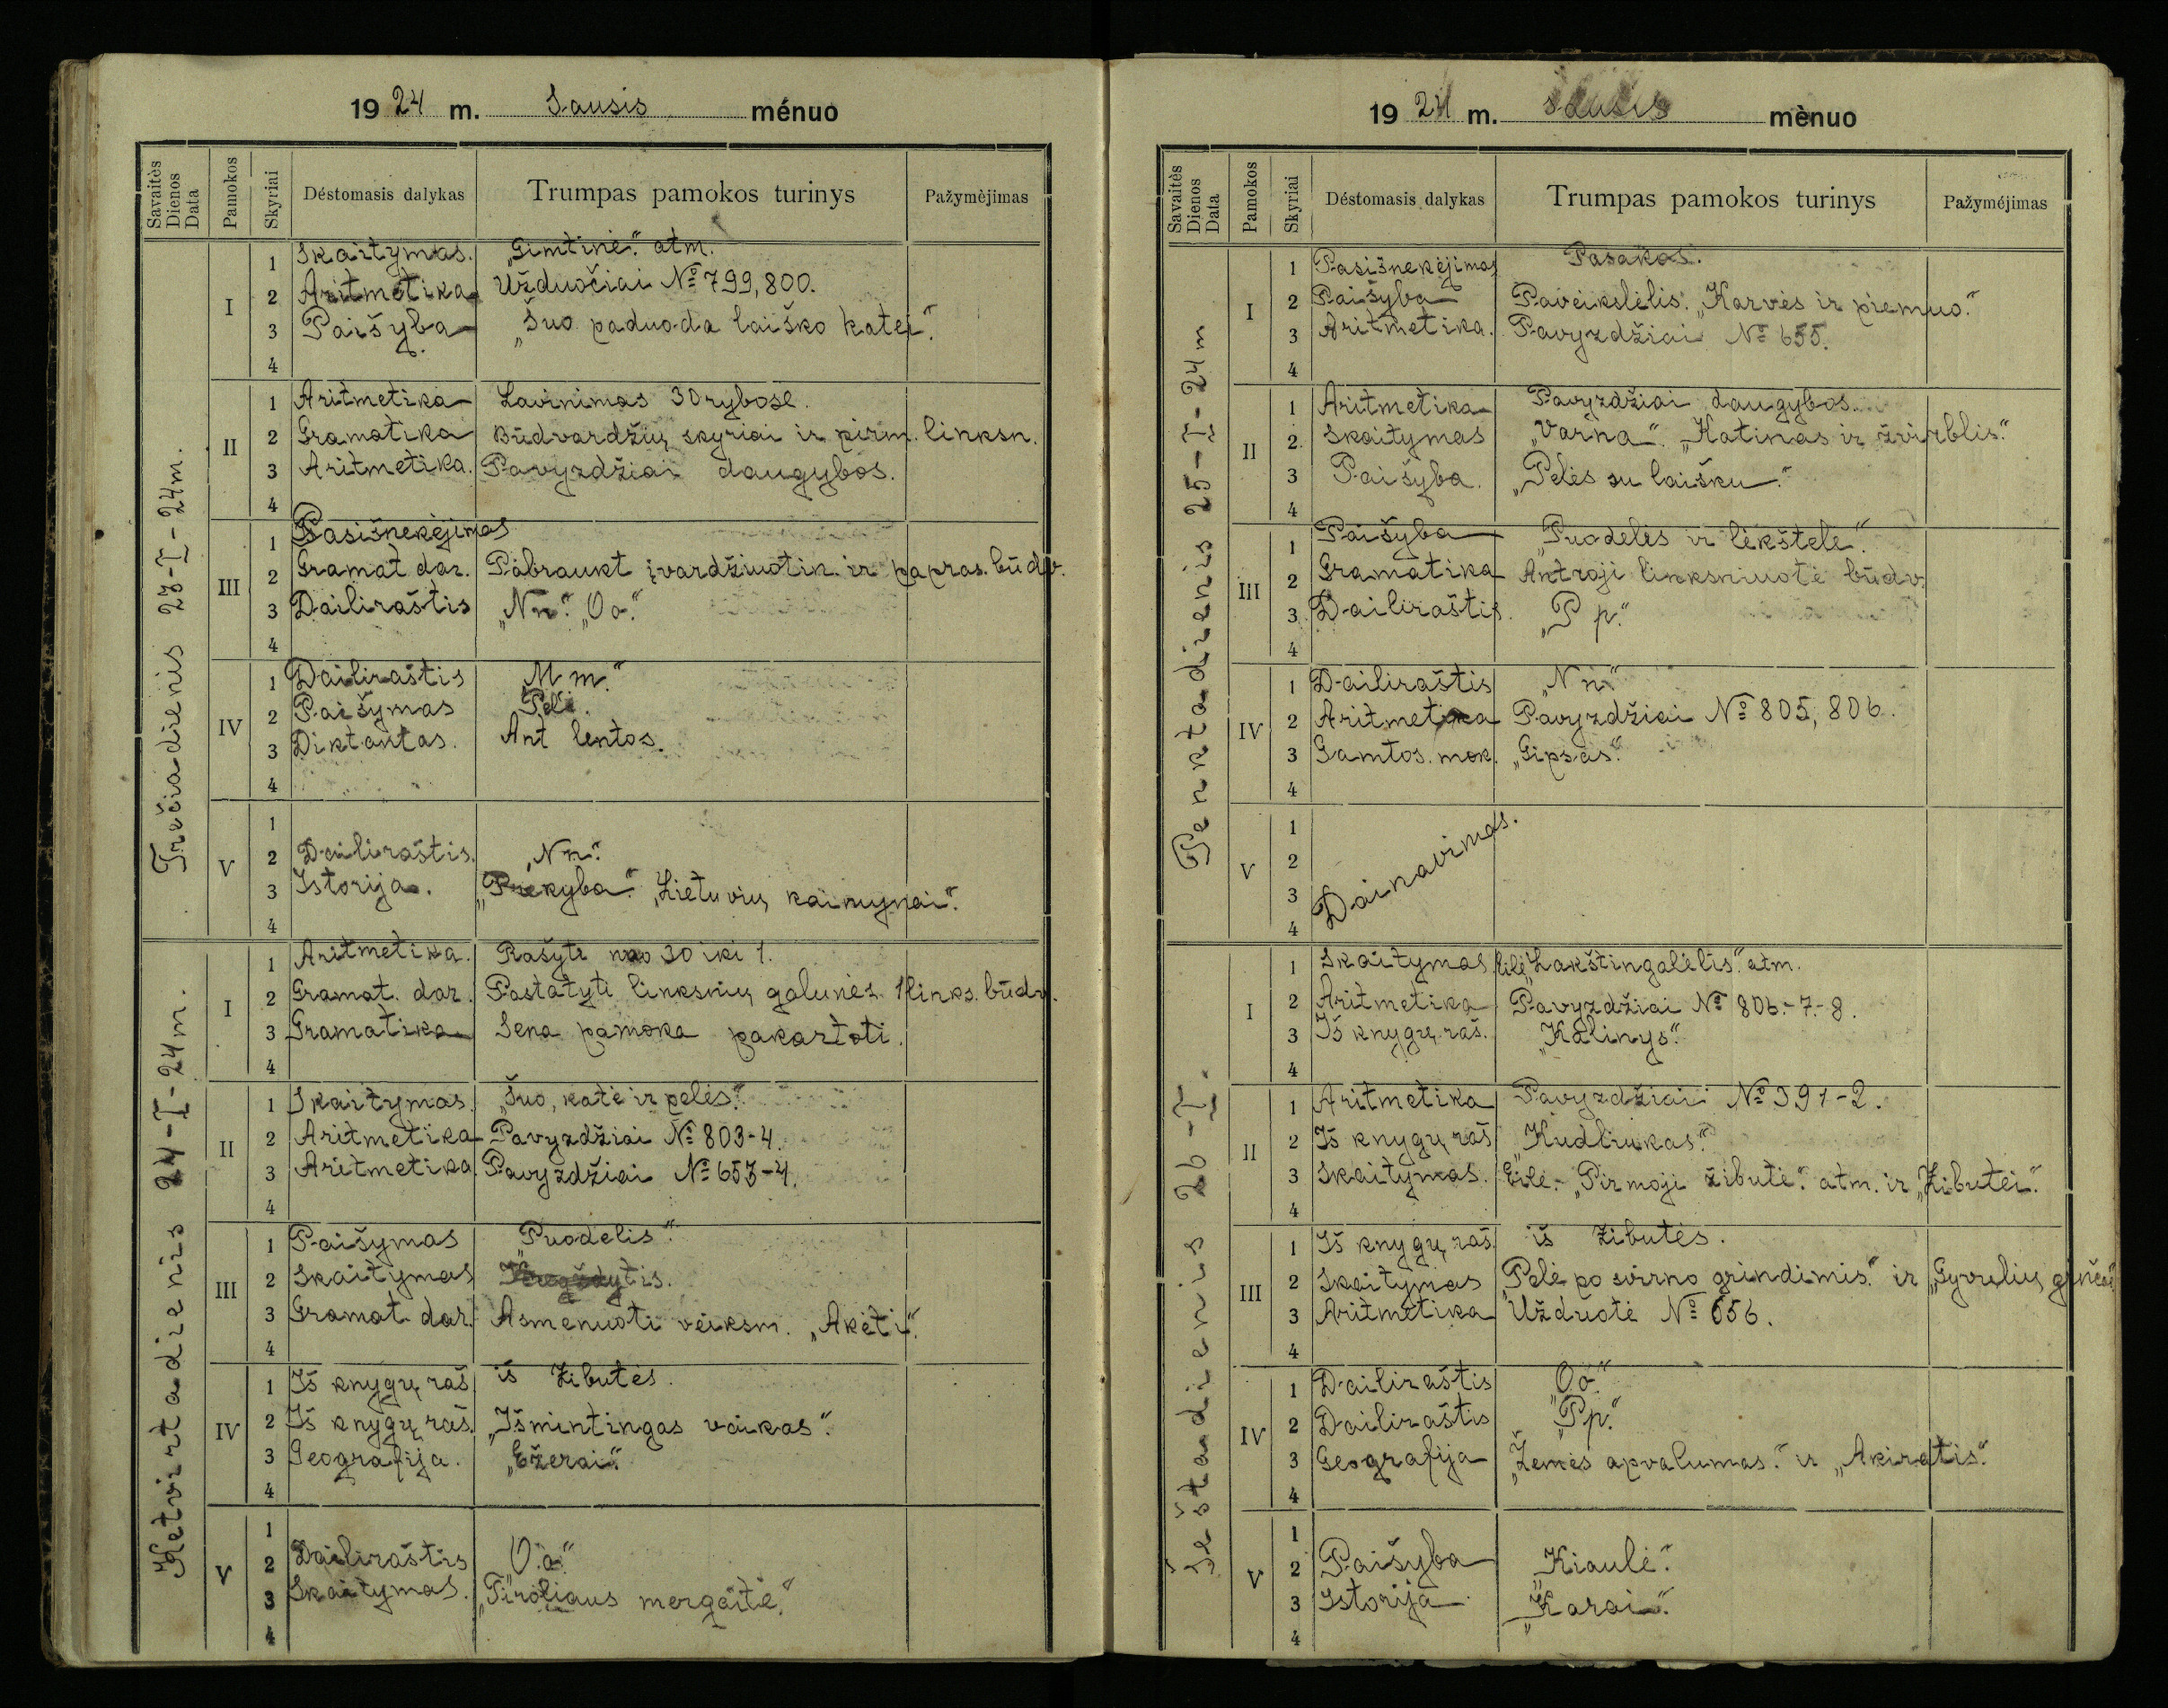 1924 m. Sausis ménuo
Savaitès Dienos Data Pamokos Skyriai Déstomasis dalykas Trumpas pamokos turinys Pažymėjimas
Trečiadienis 23-I-24m.
I
1 Skaitymas. „Gimtinė“. atm.
2 Aritmetika Užduočiai № 799, 800.
3 Paišyba „Šuo paduoda laiško katei“.
4
II
1 Aritmetika Lavinimas 30 rybose.
2 Gramatika Būdvardžių skyriai ir pirm. linksn.
3 Aritmetika. Pavyzdžiai daugybos.
4
III
1 Pasišnekėjimas
2 Gramat dar. Pabraukt įvardžiuotin. ir papras. būdv.
3 Dailiraštis „Nn“. „Oo“.
4
IV
1 Dailiraštis M m“.
2 Paišymas Pelė.
3 Diktantas. Ant lentos.
4
V
1
2 Dailiraštis. „Nn“.
3 Istorija. „Prekyba“. „Lietuvių kaimynai“.
4
Ketvirtadienis 24-I-24m.
I
1 Aritmetika. Rašyti nuo 30 iki 1.
2 Gramat. dar. Pastatyti linksnių galunės 1 links. būdv.
3 Gramatika Sena pamoka pakartoti.
4
II
1 Skaitymas. „Šuo, katė ir pelės“.
2 Aritmetika Pavyzdžiai № 803-4.
3 Aritmetika. Pavyzdžiai № 653-4.
4
III
1 Paišymas „Puodelis“.
2 Skaitymas
3 Gramat. dar. Asmenuoti veiksm. „Akėti“.
4
IV
1 Iš knygų raš. iš Žibutės.
2 Iš knygų raš. „Išmintingas vaikas“.
3 Geografija. „Ežerai“.
4
V
1
2 Dailiraštis „O o“
3 Skaitymas. „Tiroliaus mergaitė“.
4
1924 m. Sausis mènuo
Savaitės Dienos Data Pamokos Skyriai Déstomasis dalykas Trumpas pamokos turinys Pažyméjimas
Penktadienis 25-I-24m
I
1 Pasišnekėjimas Pasakos.
2 Paišyba Paveikslėlis. „Karvės ir piemuo“.
3 Aritmetika. Pavyzdžiai № 655.
4
II
1 Aritmetika Pavyzdžiai daugybos.
2 Skaitymas „Varna“. „Katinas ir žvirblis“.
3 Paišyba. „Pelės su laišku“.
4
III
1 Paišyba „Puodelės ir lėkštelė“.
2 Gramatika Antroji linksniuotė būdv.
3 Dailiraštis. „P p“.
4
IV
1 Dailiraštis „N n“
2 Aritmetika Pavyzdžiai № 805, 806.
3 Gamtos. mok. „Gipsas“.
4
V
1
2
3
4
Dainavimas.
Šeštadienius 26-I.
I
1 Skaitymas Eilė „Lakštingalėlis“. atm.
2 Aritmetika Pavyzdžiai № 806.-7.-8.
3 Iš knygų raš. „Kalinys“.
4
II
1 Aritmetika Pavyzdžiai № 391-2.
2 Iš knygų raš „Kudliukas“.
3 Skaitymas. Eilė.- „Pirmoji žibutė“. atm. ir „Žibutei“.
4
III
1 Iš knygų raš. iš Žibutės.
2 Skaitymas „Pelė po svirno grindimis“. ir „Gyvulių
3 Aritmetika Užduotė № 656.
4
IV
1 Dailiraštis „Oo“.
2 Dailiraštis „Pp“.
3 Geografija „Žemės apvalumas“. ir „Akiratis“.
4
V
1
2 Paišyba „Kiaulė“.
3 Istorija „Karai“.
4